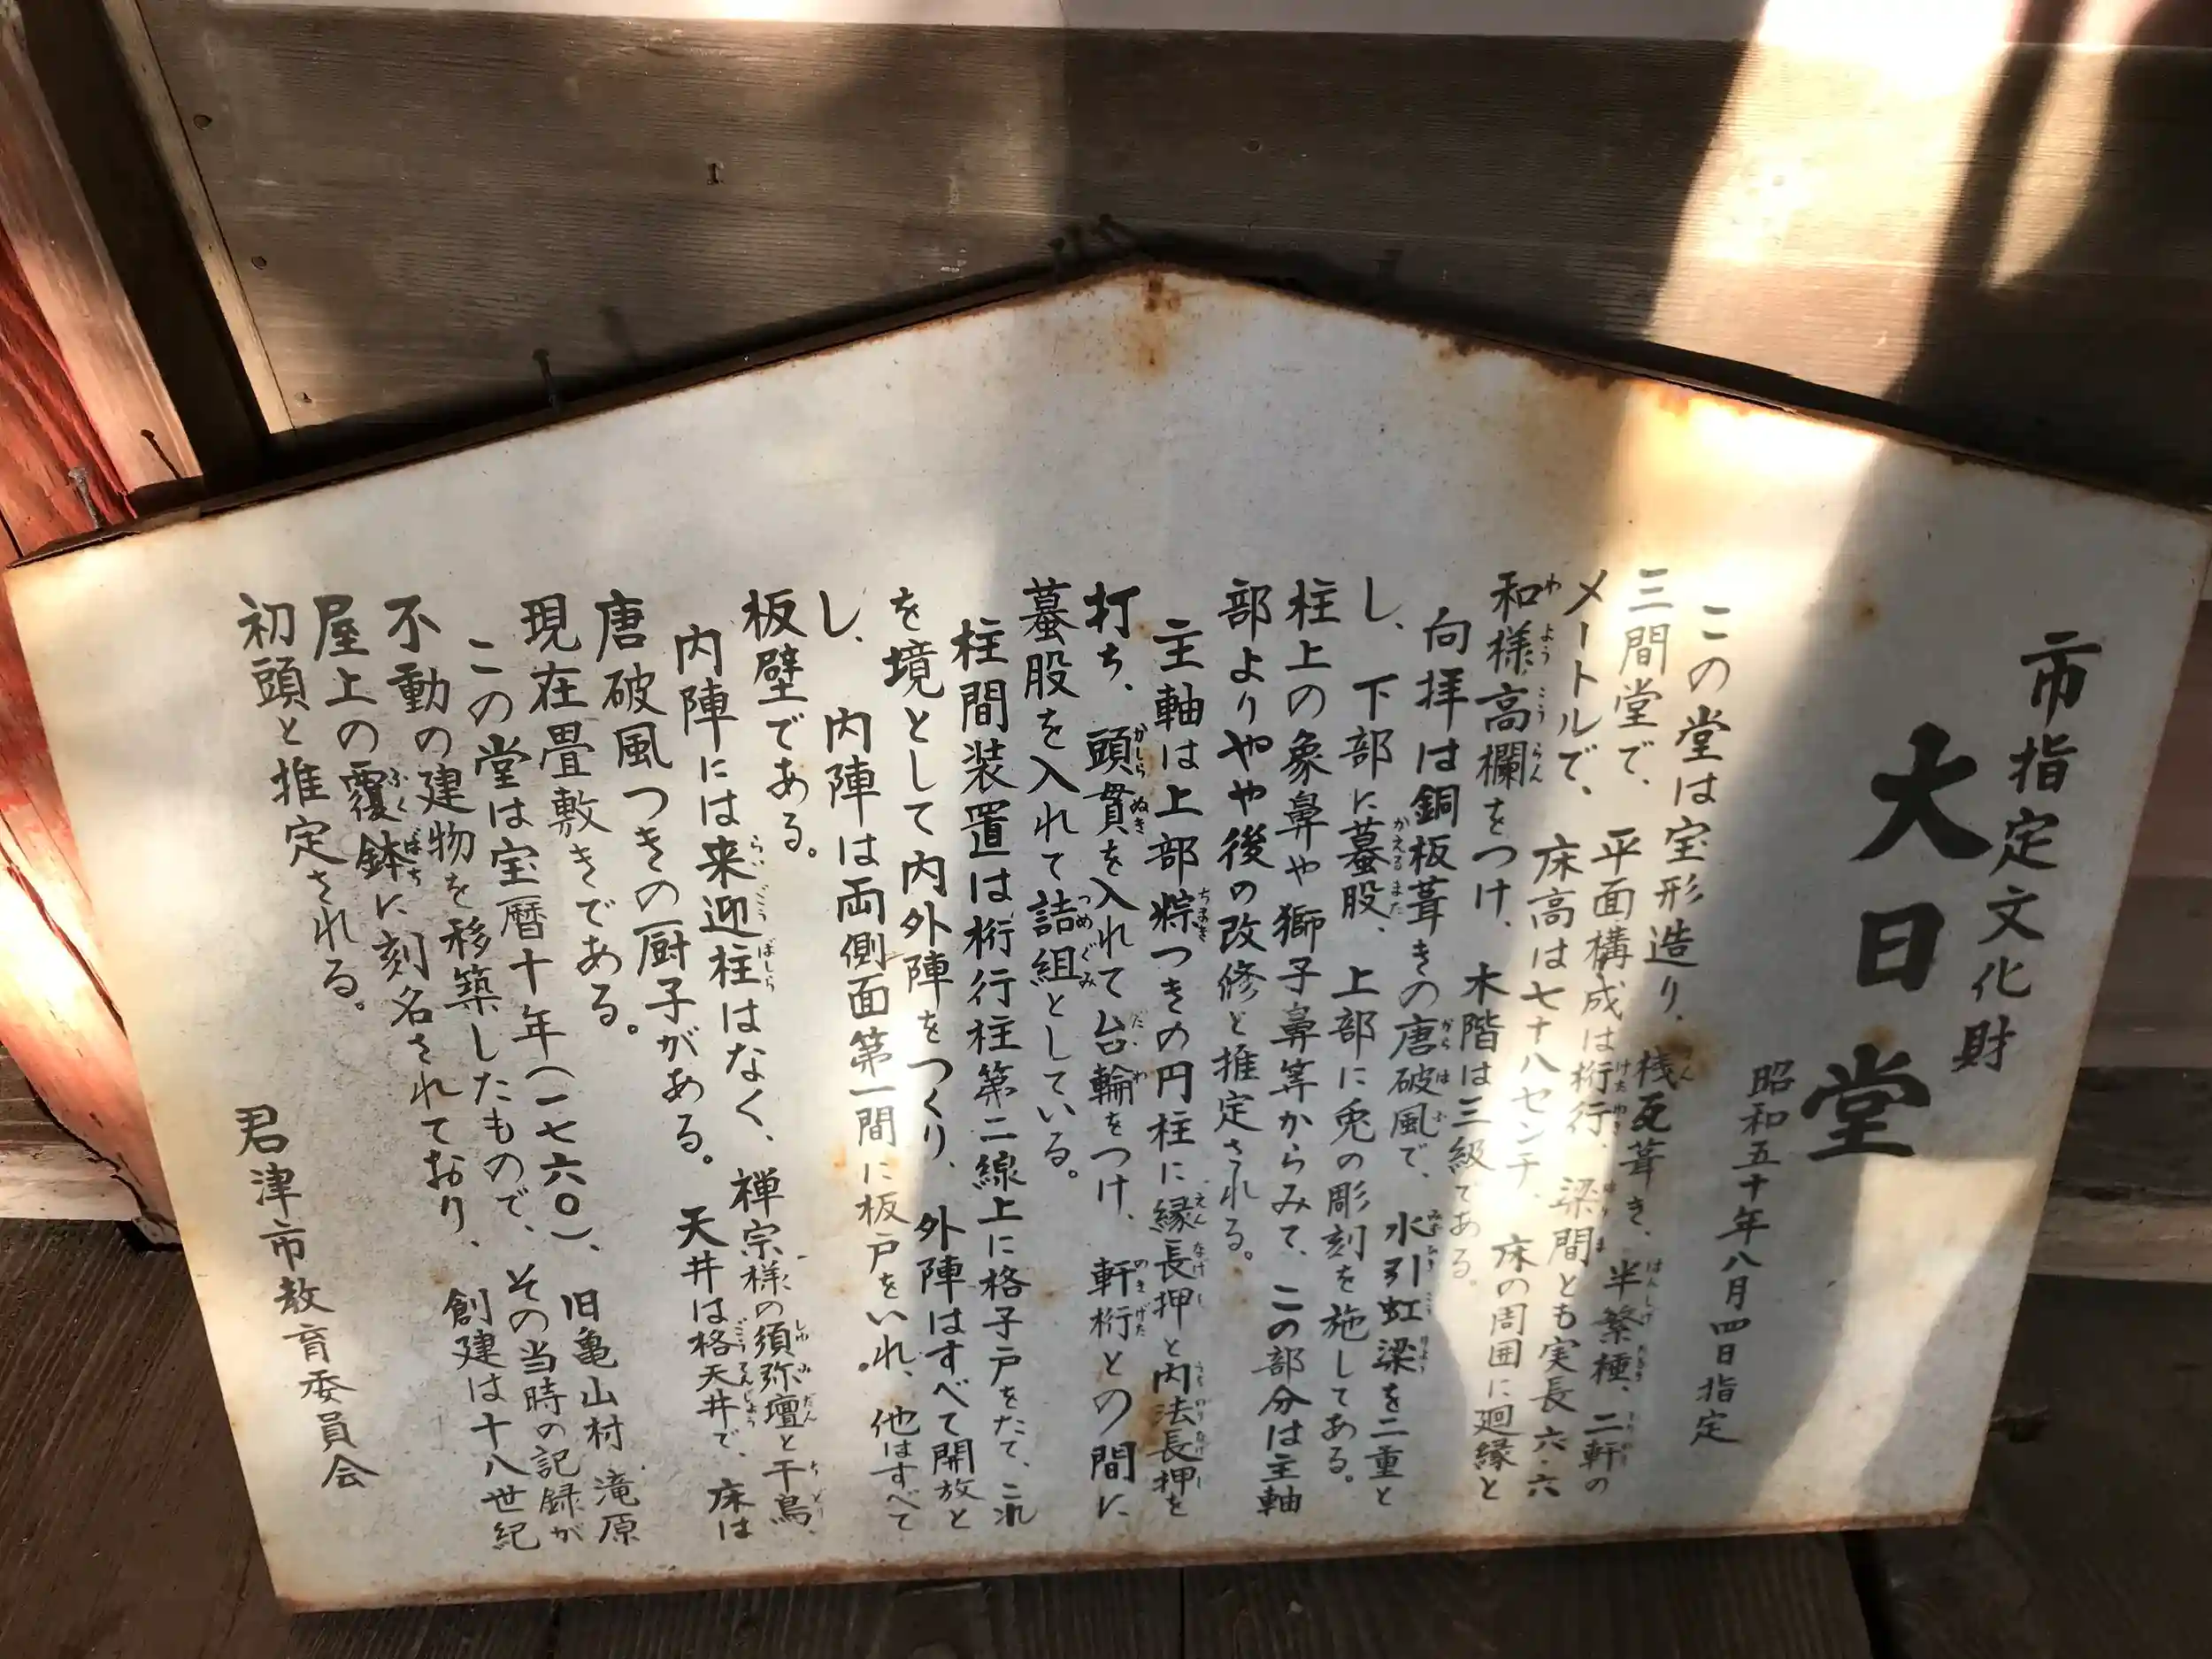 市指定文化財
大日堂
昭和五十年八月四日指定
この堂は宝形造り、桟瓦葺き、半繁種、二軒の
三間堂で、平面構成は桁行、梁間とも実長六・六
メートルで、床高は七十八センチ、床の周囲に廻縁と
和様高欄をつけ、木階は三級である。
向拝は銅板葺きの唐破風で、水引虹梁を二重と
し、下部に蟇股、上部に兎の彫刻を施してある。
柱上の象鼻や獅子鼻等からみて、この部分は主軸
部よりやや後の改修と推定される。
主軸は上部粽つきの円柱に縁長押と内法長押を
打ち、頭貫を入れて台輪をつけ、軒桁との間に
蟇股を入れて詰組としている。
柱間装置は桁行柱第二線上に格子戸をたて、これ
を境として内外陣をつくり、外陣はすべて開放と
し、内陣は両側面第一間に板戸をいれ、他はすべて
板壁である。
内陣には来迎柱はなく、禅宗様の須弥壇と千鳥、
唐破風つきの厨子がある。天井は格天井で、床は
現在畳敷きである。
この堂は宝暦十年(一七六〇)、旧亀山村滝原
不動の建物を移築したもので、その当時の記録が
屋上の覆鉢に刻名されており、創建は十八世紀
初頭と推定される。
君津市教育委員会